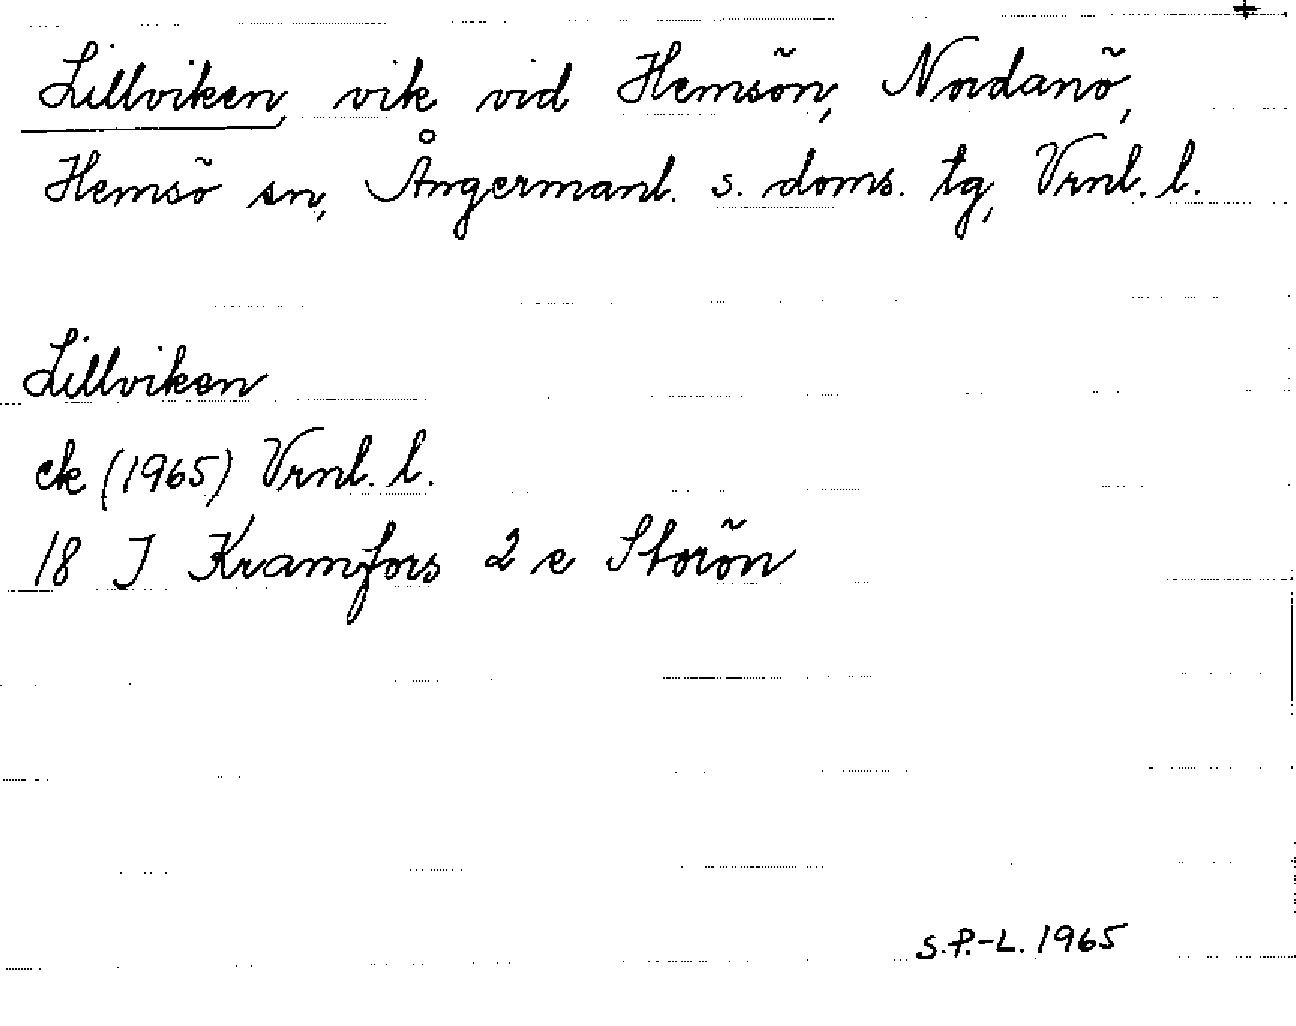 Lillviken, vik vid Hemsön, Nordanö,
Hemsö sn, Ångermanl. s. doms. tg, Vrnl. l.
Lillviken
ek (1965) Vrnl. l.
18 J Kramfors 2 e Storön
S.P.-L. 1965